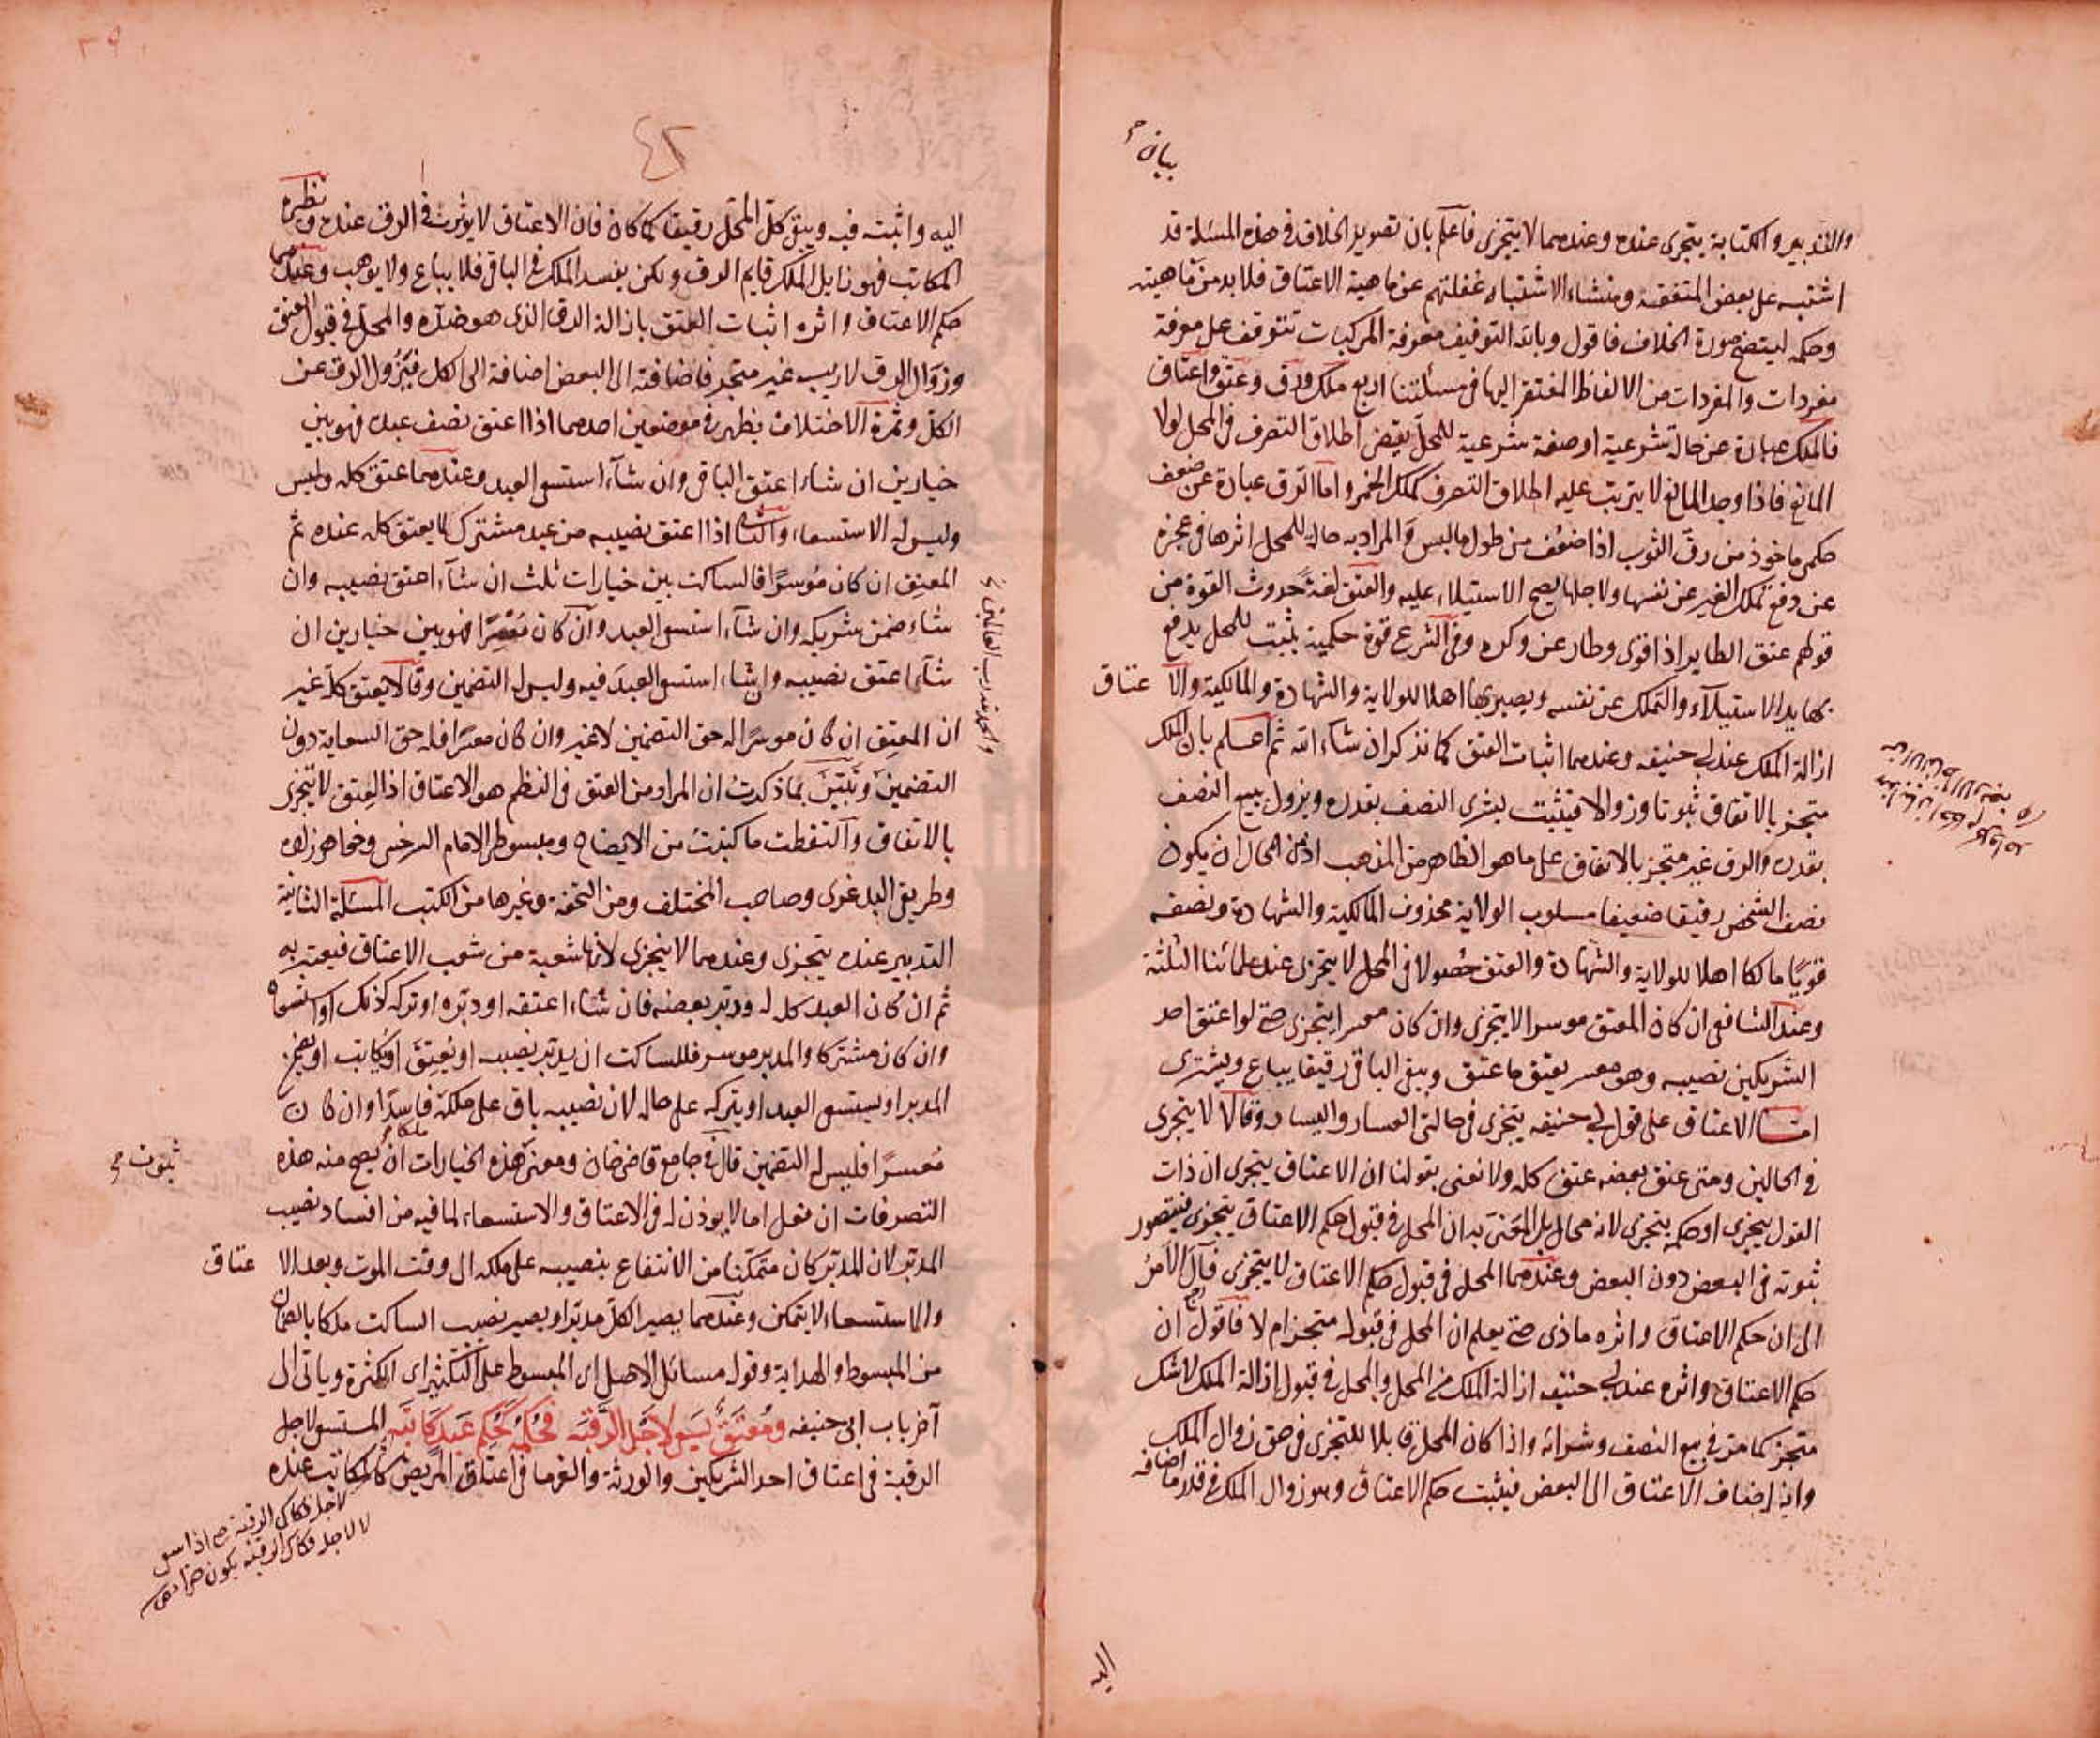 بيان
والتدبير والكتابة يتجزى عنده وعندهما لا يتجزى فاعلم بان تصوير الخلاف في هذه المسئلة قد
اشتبه على بعض المتفقهة ومنشاء الاشتباه غفلتهم عن ماهية الاعتاق فلا بد من ماهيته
وحكمه ليتضح صورة الخلاف فاقول وبالله التوفيق معرفة المركبات تتوقف على معرفة
مفردات والمفردات من الالفاظ المفتقر اليها في مسئلتنا اربع ملك ورق وعتق واعتاق
فالملك عبارة عن حالة شرعية او صفة شرعية للمحل يقتضي اطلاق التصرف في المحل لولا
المانع فاذا وجد المانع لا يترتب عليه اطلاق التصرف كملك الخمر واما الرق عبارة عن ضعف
حكمي ماخوذ من رق الثوب اذا ضعف من طول ما لبس والمراد به حالة للمحل اثرها في عجزه
عن دفع تملك الغير عن نفسها ولاجلها يصح الاستيلاء عليه والعتق لغة حدوث القوة من
قولهم عتق الطاير اذا قوى وطار عن وكره وفي الشرع قوة حكمية يثبت للمحل يدفع
بها يد الاستيلاء والتملك عن نفسه ويصير بها اهلا للولاية والشهادة والمالكية والاعتاق
ازالة الملك عند ابي حنيفه وعندهما اثبات العتق كما نذكر ان شاء الله ثم اعلم بان الملك
متجز بالاتفاق ثبوتا وزوالا فيثبت بشرى النصف بقدره ويزول ببيع النصف
بقدره والرق غير متجز بالاتفاق على ما هو الظاهر من المذهب اذ من المحال ان يكون
نصف الشخص رقيقا ضعيفا مسلوب الولاية محذوف المالكية والشهادة ونصفه
قويا مالكا اهلا للولاية والشهادة والعتق حصولا في المحل لا يتجزى عند علمائنا الثلثة
وعند الشافعي ان كان المعتق موسرا لا يتجزى وان كان معسرا يتجزى حتى لو اعتق احد
الشريكين نصيبه وهو معسر يعتق ما عتق ويبقى الباقي رقيقا يباع ويشترى
امّا الاعتاق على قول ابي حنيفه يتجزى في حالتي العسار واليسار وقالا لا يتجزى
في الحالين ومتى عتق بعضه عتق كله ولا نعني بقولنا ان الاعتاق يتجزى ان ذات
القول يتجزى او حكمه يتجزى لانه محال بل المعنى به ان المحل في قبول حكم الاعتاق يتجزى فيتصور
ثبوته في البعض دون البعض وعندهما المحل في قبول حكم الاعتاق لا يتجزى فآل الامر
الى ان حكم الاعتاق واثره ماذي حتى يعلم ان المحل في قبوله متجز ام لا فاقول ان
حكم الاعتاق واثره عند ابي حنيفه ازالة الملك في المحل والمحل في قبول ازالة الملك لا شك
متجز كما مر في بيع النصف وشرائه واذا كان المحل قابلا للتجزى في حق زوال الملك
وانه اضاف الاعتاق الى البعض فيثبت حكم الاعتاق وهو زوال الملك في قدر ما اضافه
اليه
٤٢
اليه واثبت فيه ويبقى كل المحل رقيقا كما كان فان الاعتاق لا يوثر في الرق عنده ونظيره
المكاتب فهو زايل الملك قايم الرق ولكن يفسد الملك في الباقي فلا يباع ولا يوهب وعندهما
حكم الاعتاق واثره اثبات العتق بازالة الرق الذي هو ضده والمحل في قبول العتق
وزوال الرق لا ريب غير متجز فاضافته الى البعض اضافة الى الكل فيزول الرق عن
الكل وثمرة الاختلاف يظهر في موضعين احدهما اذا اعتق نصف عبده فهو بين
خيارين ان شاء اعتق الباقي وان شاء استسعى العبد وعندهما عتق كله وليس
وليس له الاستسعاء والثاني اذا اعتق نصيبه من عبد مشترك لا يعتق كله عنده ثم
المعتق ان كان موسرا فالساكت بين خيارات ثلث ان شاء اعتق نصيبه وان
شاء ضمن شريكه وان شاء استسعى العبد وان كان معسرا فهو بين خيارين ان
شاء اعتق نصيبه وان شاء استسعى العبد فيه وليس له التضمين وقالا يعتق كله غير
ان المعتق ان كان موسرا له حق التضمين لا غير وان كان معسرا فله حق السعاية دون
التضمين وتبين بما ذكرت ان المراد من العتق في النظم هو الاعتاق اذ العتق لا يتجزى
بالاتفاق والتقطت ما كتبت من الايضاح ومبسوط الامام السرخسي وخواهر زاده
وطريق البلدغرى وصاحب المختلف ومن التحفة وغيرها من الكتب المسئلة الثانية
التدبير عنده يتجزى وعندهما لا يتجزى لانها شعبة من شعب الاعتاق فيعتبر به
ثم ان كان العبد كله له ودبر بعضه فان شاء اعتقه او دبره او تركه كذلك او استسعاه
وان كان مشتركا والمدبر موسر فللساكت ان يدبر نصيبه او يعتق او يكاتب او يضمن
المدبر او يستسعى العبد او يتركه على حاله لان نصيبه باق على ملكه فاسدا وان كان
معسرا فليس له التضمين قال في جامع قاضي خان ومعنى هذه الخيارات ان يصح منه هذه
التصرفات ان فعل اما لا يوذن له في الاعتاق والاستسعاء لما فيه من افساد نصيب
المدبر لان المدبر كان متمكنا من الانتفاع بنصيبه على ملكه الى وقت الموت وبعد الاعتاق
والاستسعاء لا يتمكن وعندهما يصير الكل مدبرا ويصير نصيب الساكت ملكا بالضمان
من المبسوط والهداية وقوله مسائل الاصل اي المبسوط على التكثير اي الكثرة وياتى الى
آخر باب ابي حنيفه ومعتق يسعى لاجل الرقبه فحكمه كحكم عبد كاتبه المستسعى لاجل
الرقبة في اعتاق احد الشريكين والورثة والغرما في اعتاق المريض كالمكاتب عنده
والحمد لله رب العالمين